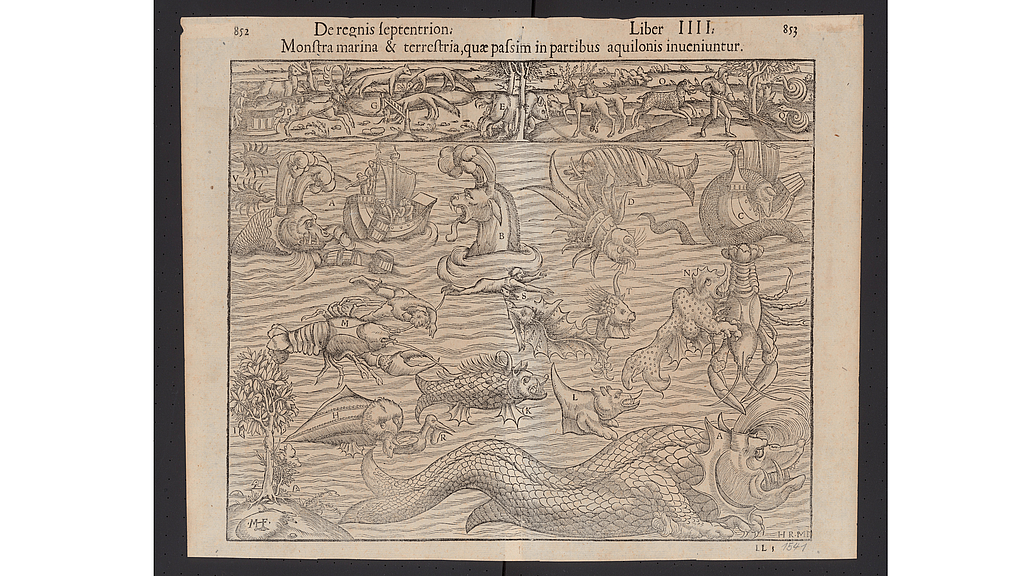 852 De regnis ſeptentrion: Liber IIII: 853
Monſtra marina & terreſtria, quæ paſsim in partibus aquilonis inueniuntur.
G E P O Q
V A B D C
S I N
M
K L
H
R
T A
·M·F·
LL 3 1541